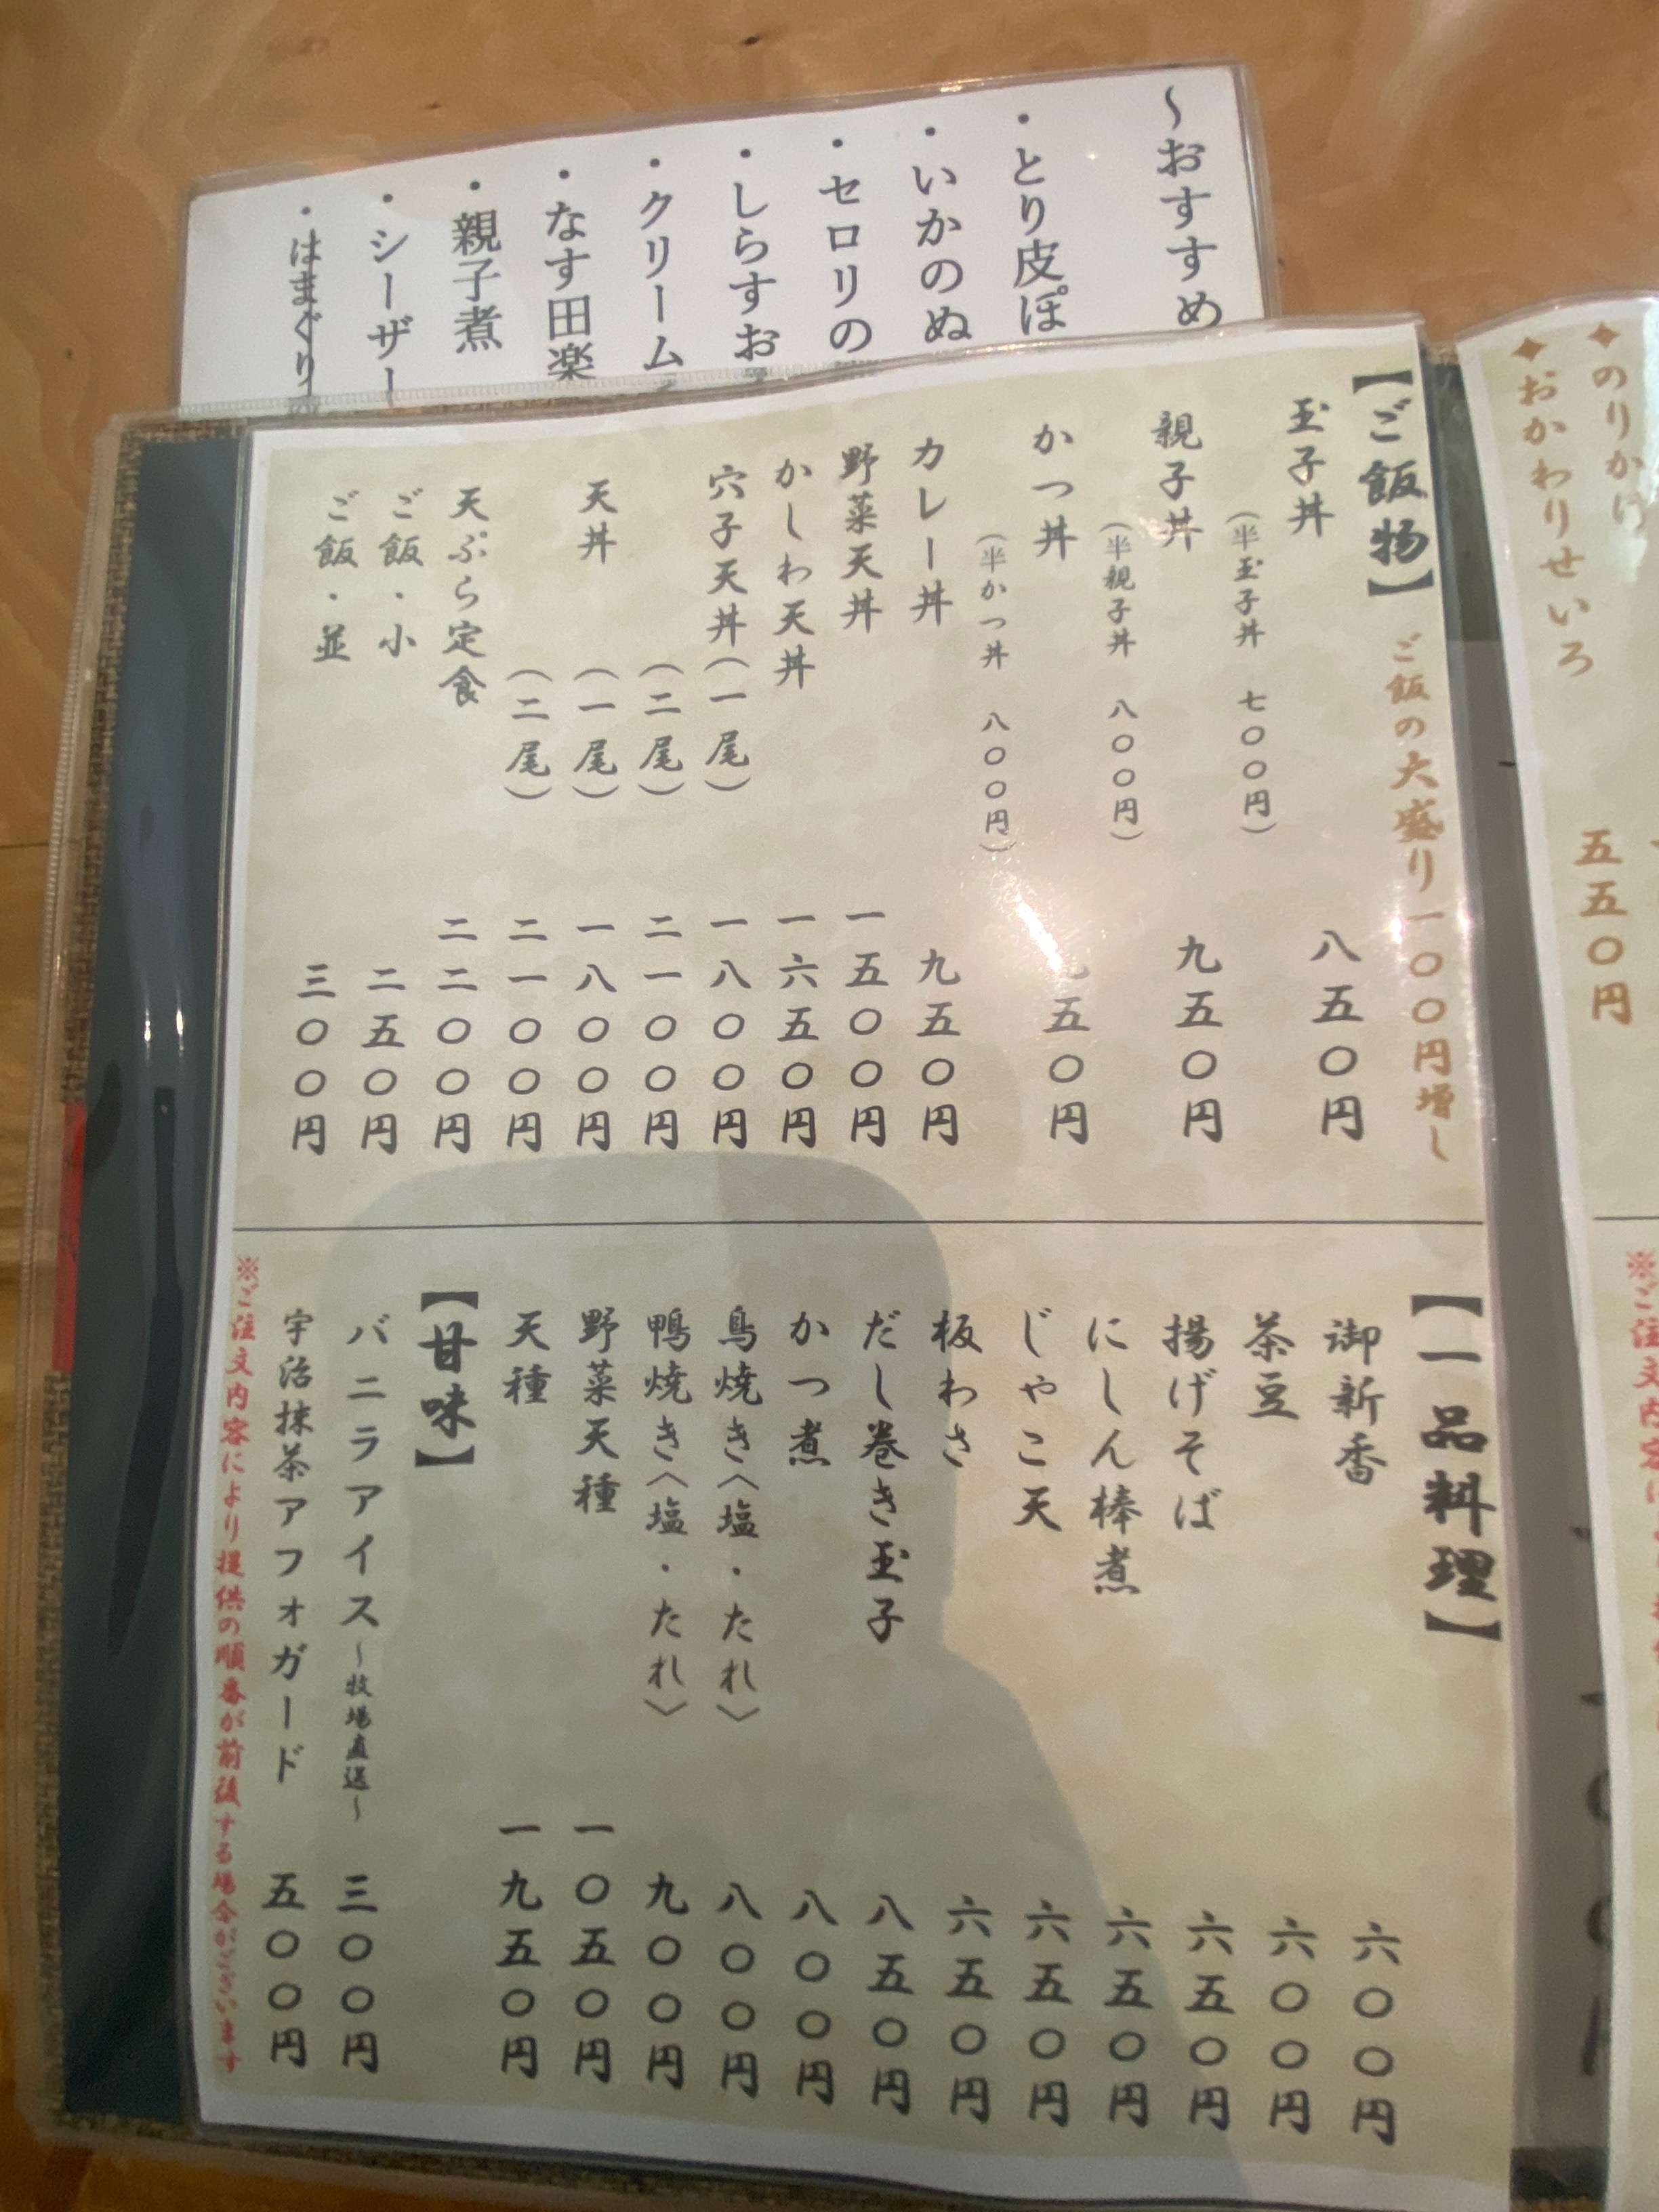 ～おすすめ
・とり皮ぽ
・いかのぬ
・セロリの
・しらすお
・クリーム
・なす田楽
・親子煮
・シーザー
・はまぐり
◆のりかけ
◆おかわりせいろ
五五〇円
【ご飯物】 ご飯の大盛り一〇〇円増し
玉子丼 八五〇円
（半玉子丼 七〇〇円）
親子丼 九五〇円
（半親子丼 八〇〇円）
かつ丼 九五〇円
（半かつ丼 八〇〇円）
カレー丼 九五〇円
野菜天丼 一五〇〇円
かしわ天丼 一六五〇円
穴子天丼（一尾） 一八〇〇円
（二尾） 二一〇〇円
天丼 （一尾） 一八〇〇円
（二尾） 二一〇〇円
天ぷら定食 二二〇〇円
ご飯・小 二五〇円
ご飯・並 三〇〇円
【一品料理】
御新香 六〇〇円
茶豆 六〇〇円
揚げそば 六五〇円
にしん棒煮 六五〇円
じゃこ天 六五〇円
板わさ 六五〇円
だし巻き玉子 八五〇円
かつ煮 八〇〇円
鳥焼き〈塩・たれ〉 八〇〇円
鴨焼き〈塩・たれ〉 九〇〇円
野菜天種 一〇五〇円
天種 一九五〇円
【甘味】
バニラアイス～牧場直送～ 三〇〇円
宇治抹茶アフォガード 五〇〇円
※ご注文内容により提供の順番が前後する場合がございます
※ご注文内容に